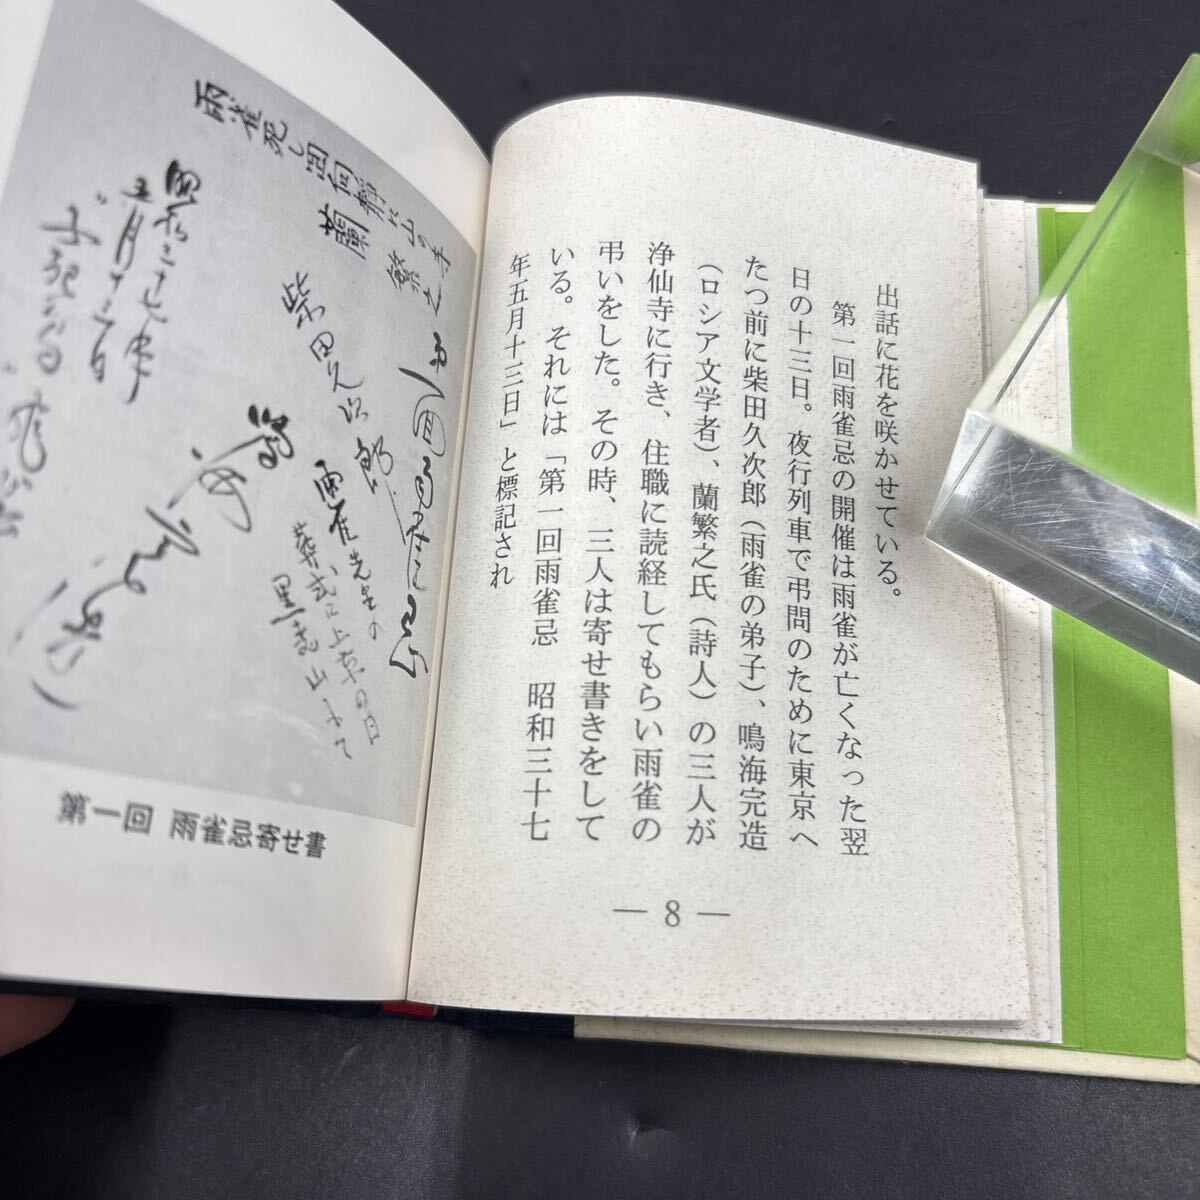 出話に花を咲かせている。
第一回雨雀忌の開催は雨雀が亡くなった翌
日の十三日。夜行列車で弔問のために東京へ
たつ前に柴田久次郎（雨雀の弟子）、鳴海完造
（ロシア文学者）、蘭繁之氏（詩人）の三人が
浄仙寺に行き、住職に読経してもらい雨雀の
弔いをした。その時、三人は寄せ書きをして
いる。それには「第一回雨雀忌　昭和三十七
年五月十三日」と標記され
— 8 —
雨雀死し四向静に山の寺
蘭繁之
第一回雨雀忌
柴田久次郎
雨雀先生の
葬式に上京の日
黒石山にて
鳴海完造
昭和三十七年
五月十三日
第一回 雨雀忌寄せ書